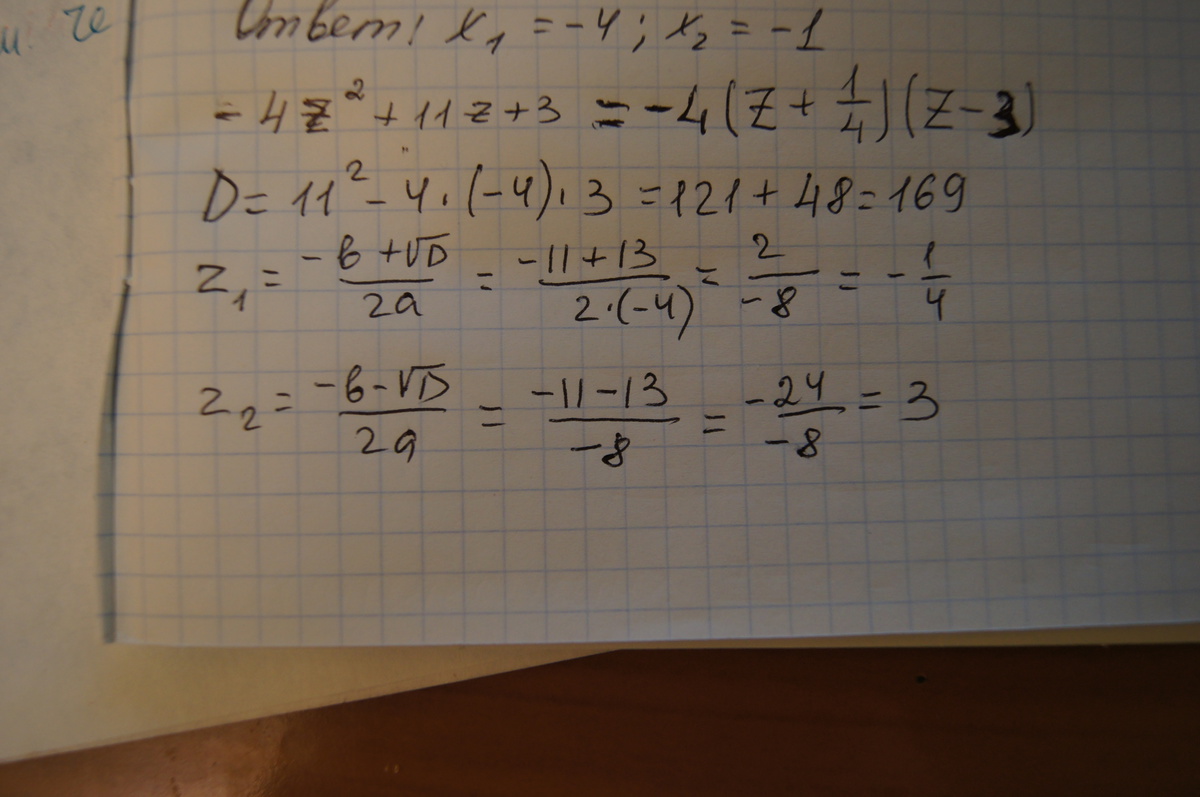 Ответ: x₁ = -4; x₂ = -1
-4z² + 11z + 3 = -4(z + 1/4)(z - 3)
D = 11² - 4·(-4)·3 = 121 + 48 = 169
z₁ = (-b + √D)/(2a) = (-11 + 13)/(2·(-4)) = 2/(-8) = -1/4
z₂ = (-b - √D)/(2a) = (-11 - 13)/(-8) = (-24)/(-8) = 3